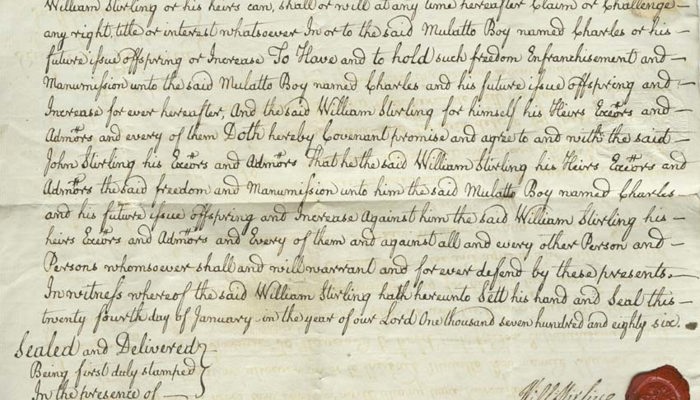 William Stirling or his heirs can, shall or will at any time hereafter Claim or Challenge –
any right, title or interest whatsoever In or to the said Mulatto Boy named Charles or his –
future issue offspring or Increase To Have and to hold such freedom Enfranchisement and –
Manumission unto the said Mulatto Boy named Charles and his future issue offspring and –
Increase for ever hereafter, And the said William Stirling for himself his Heirs Exec:ors and –
Adm:ors and every of them Doth hereby Covenant promise and agree to and with the said –
John Stirling his Exec:ors and Adm:ors That he the said William Stirling his Heirs Exec:ors and
Adm:ors the said freedom and Manumission unto him the said Mulatto Boy named Charles –
and his future issue offspring and Increase Against him the said William Stirling his –
heirs Exec:ors and Adm:ors and Every of them and against all and every other Person and –
Persons whomsoever shall and will warrant and for ever defend by these presents. –
In witness whereof the said William Stirling hath hereunto Sett his hand and Seal this –
twenty fourth day of January in the year of our Lord One thousand seven hundred and eighty six. –
Sealed and Delivered
Being first duly stamped
In the presence of –
Will Stirling